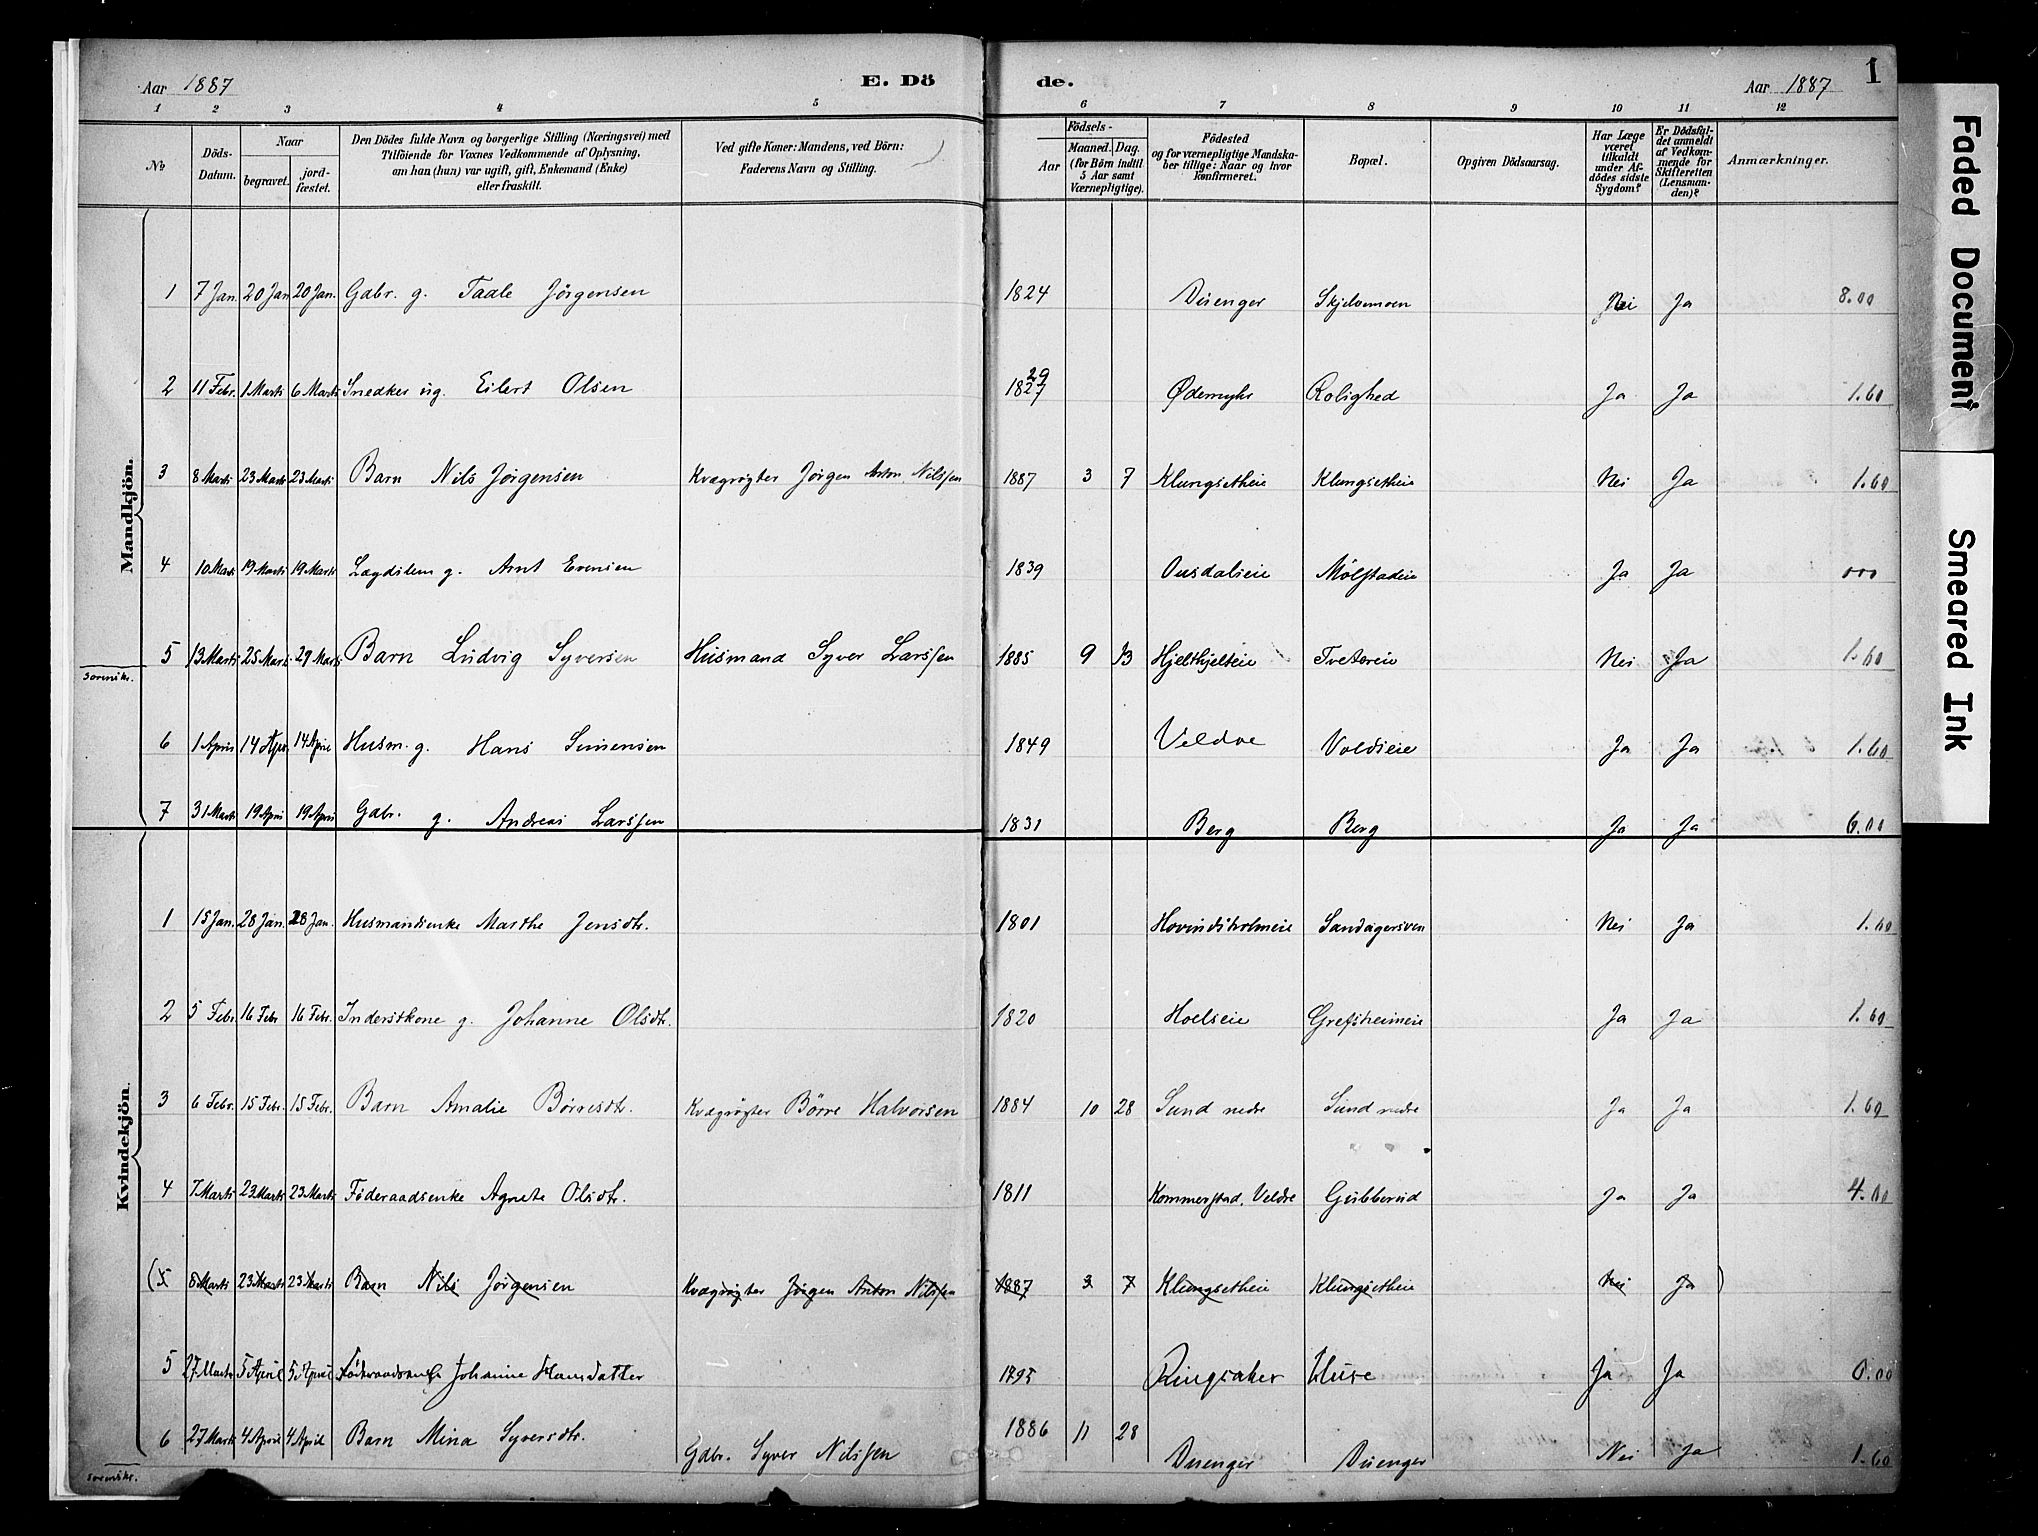 Aar 1887 E. Dö
de. Aar 1887 1
1 2 3 4 5 6 7 8 9 10 11 12
No
Döds-Datum.
Naar
begravet.
jordfæstet.
Den Dödes fulde Navn og borgerlige Stilling (Næringsvei) med
Tilföiende for Voxnes Vedkommende af Oplysning,
om han (hun) var ugift, gift, Enkemand (Enke)
eller fraskilt.
Ved gifte Koner: Mandens, ved Börn:
Faderens Navn og Stilling.
Födsels-
Aar
Maaned. Dag.
(for Börn indtil
5 Aar samt
Værnepligtige).
Födested
og for værnepligtige Mandska-
ber tillige: Naar og hvor
konfirmeret.
Bopæl.
Opgiven Dödsaarsag.
Har Læge
været
tilkaldt
under Af-
dödes sidste
Sygdom?
Er Dödsfal-
det anmeldt
af Vedkom-
mende for
Skifteretten
(Lensman-
den)?
Anmærkninger.
Mandkjön.
1 7 Jan. 20 Jan 20 Jan. Gdbr. g. Taale Jörgensen 1824 Dienger Skjelvemoen Nei Ja 8.00
2 11 Febr. 1 Marts 6 Marts Snedker ug. Eilert Olsen 1827 29 Ødemyhr Rolighed Ja Ja 1.60
3 8 Marts 23 Marts 23 Marts Barn Nils Jørgensen Kvægrøgter Jörgen Anton Nilssen 1887 3 7 Klungsetheie Klungsetheie Nei Ja 1.60
4 10 Marts 19 Marts 19 Marts Lægdslem g. Arnt Evensen 1839 Ousdalseie Mölstadeie Ja Ja 000
5 13 Marts 25 Marts 29 Marts Barn Ludvig Syversen Husmand Syver Larssen 1885 9 13 Hjelthjelteie Tvetereie Nei Ja 1.60
6 1 April 14 Apr. 14 April Husm. g. Hans Simensen 1849 Veldre Voldseie Ja Ja 1.60
7 31 Marts 19 April 19 April Gdbr. g. Andreas Larssen 1831 Berg Berg Ja Ja 6.00
Kvindekjön.
1 15 Jan. 28 Jan. 28 Jan. Husmandsenke Marthe Jensdtr. 1801 Hovindsholmeie Sandagersven Nei Ja 1.60
2 5 Febr. 16 Febr 16 Febr. Inderstkone g. Johanne Olsdtr. 1820 Hoelseie Grefsheimeie Ja Ja 1.60
3 6 Febr. 15 Febr. 15 Febr. Barn Amalie Börresdtr. Kvægrøgter Börre Halvorsen 1884 10 28 Sund nedre Sund nedre Ja Ja 1.60
4 7 Marts 23 Marts 23 Marts Föderaadsenke Agnete Olsdtr. 1811 Kommerstad, Veldre Gubberud Ja Ja 4.00
(5 8 Marts 23 Marts 23 Marts Barn Nils Jörgensen Kvægrøgter Jörgen Anton Nilssen 1887 3 7 Klungsetheie Klungsetheie Nei Ja )
5 27 Marts 5 April 5 April Föderaadsenke Johanne Hansdatter 1795 Ringsaker Huse Ja Ja 0.00
6 27 Marts 4 April 4 April Barn Mina Syversdtr. Gdbr. Syver Nilssen 1886 11 28 Dienger Dienger Nei Ja 1.60
Faded Document
Smeared Ink